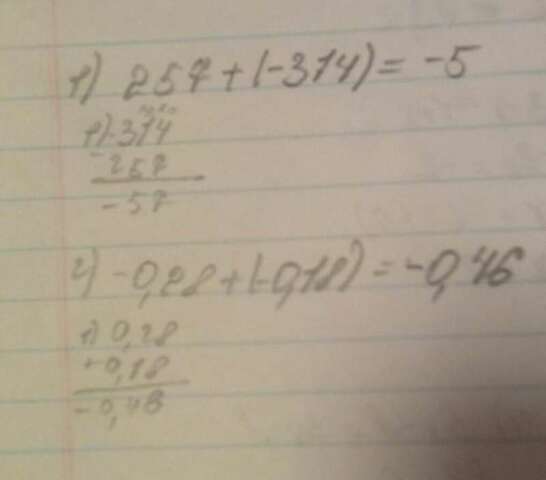 1) 257 + (-314) = -5
1) -314
- 257
-57
2) -0,28 + (-0,18) = -0,46
1) 0,28
+0,18
-0,46